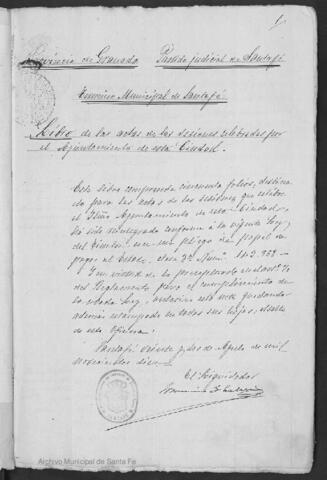 1
Provincia de Granada Partido judicial de Santafé
Termino Municipal de Santafé
Libro de las actas de las sesiones celebradas por
el Ayuntamiento de esta Ciudad.
Este libro comprende cincuenta folios, destina
do para las actas de las sesiones que celebre
el Iltmo Ayuntamiento de esta Ciudad,
ha sido reintegrado conforme a la vigente Ley
del Timbre con un pliego de papel de
pagos al Estado, clase
En virtud de lo preceptuado en el
del Reglamento para el cumplimiento de
la citada Ley, autorizo esta nota quedando
además estampado en todas sus hojas, el sello
de esta Oficina.
Santafé veinte y dos de Agosto de mil
novecientos diez
El Liquidador
Archivo Municipal de Santa Fe